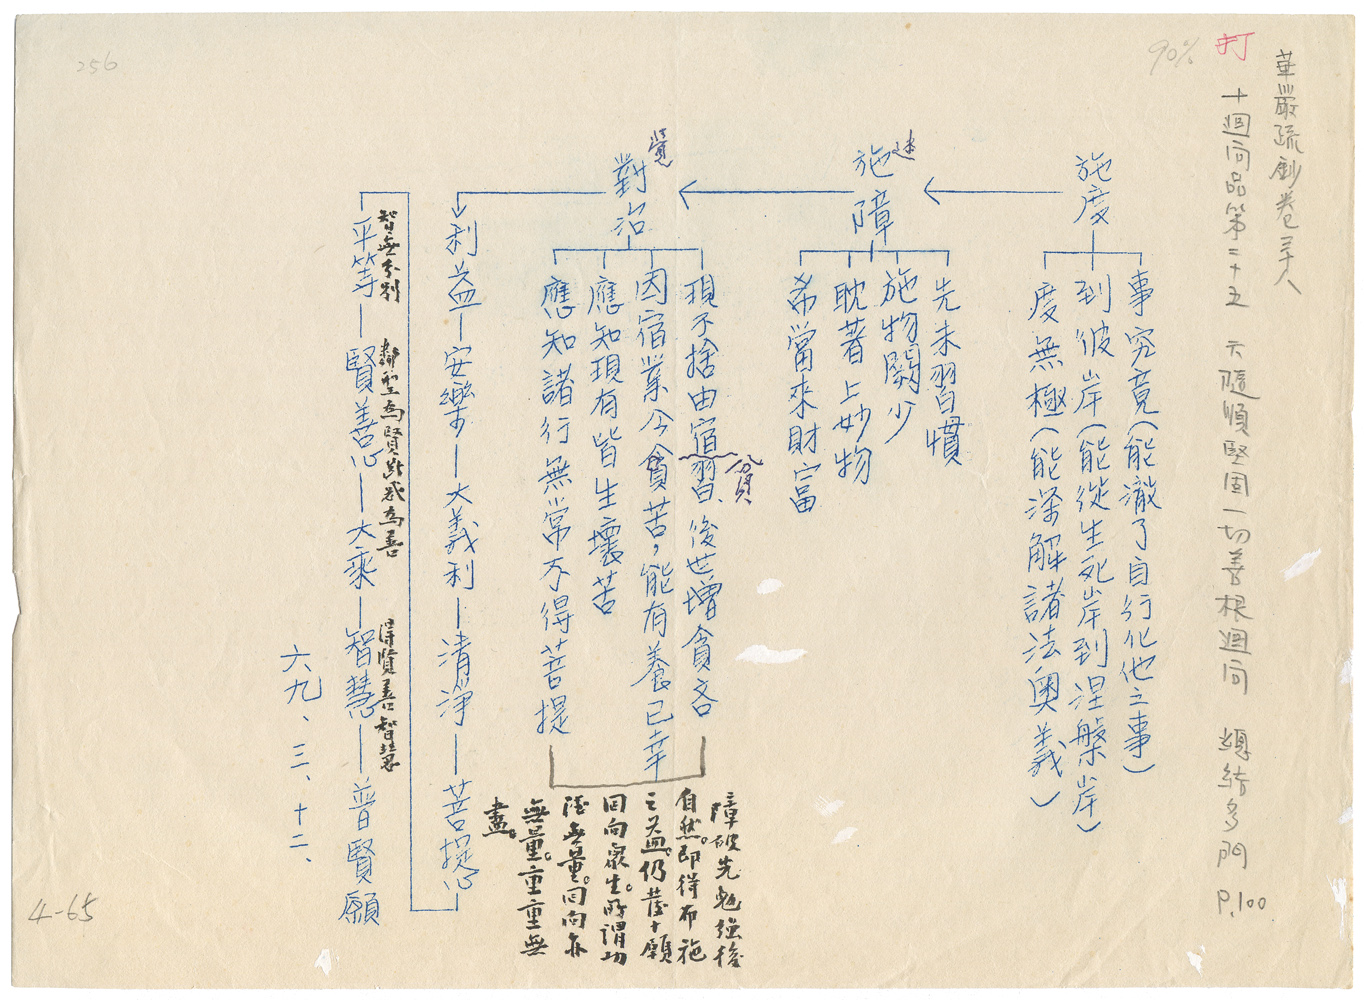 華嚴疏鈔卷三八
打
90%
十迴向品第二十五 六隨順堅固一切善根迴向 總結多門 P.100
施度
事究竟(能澈了自行化他之事)
到彼岸(能從生死岸到涅槃岸)
度無極(能深解諸法奧義)
迷
施障
先未習慣
施物闕少
耽著上妙物
希當來財富
覺
對治
現不捨由宿習、後世增貪吝
貧
因宿業今貧苦,能有養已幸
應知現有皆生壞苦
應知諸行無常不得菩提
障破先勉強後
自然。即得布施
之益。仍發十願
回向眾生。所謂功
德無量。回向亦
無量。重重無
盡。
利益—安樂—大義利—清淨—菩提心
智無分別
鄰聖為賢斷惑為善
得賢善智慧
平等—賢善心—大乘—智慧—普賢願
六九、三、十二、
256
4-65